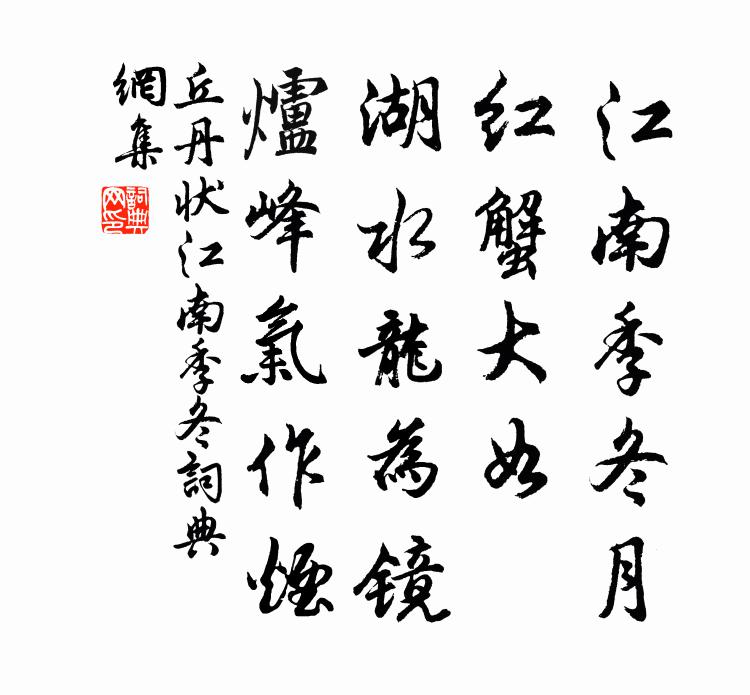 江南季冬月
红蟹大如
湖水龍為镜
爐峰氣作煙
丘丹状江南季冬詞典
網集
詞典
网印